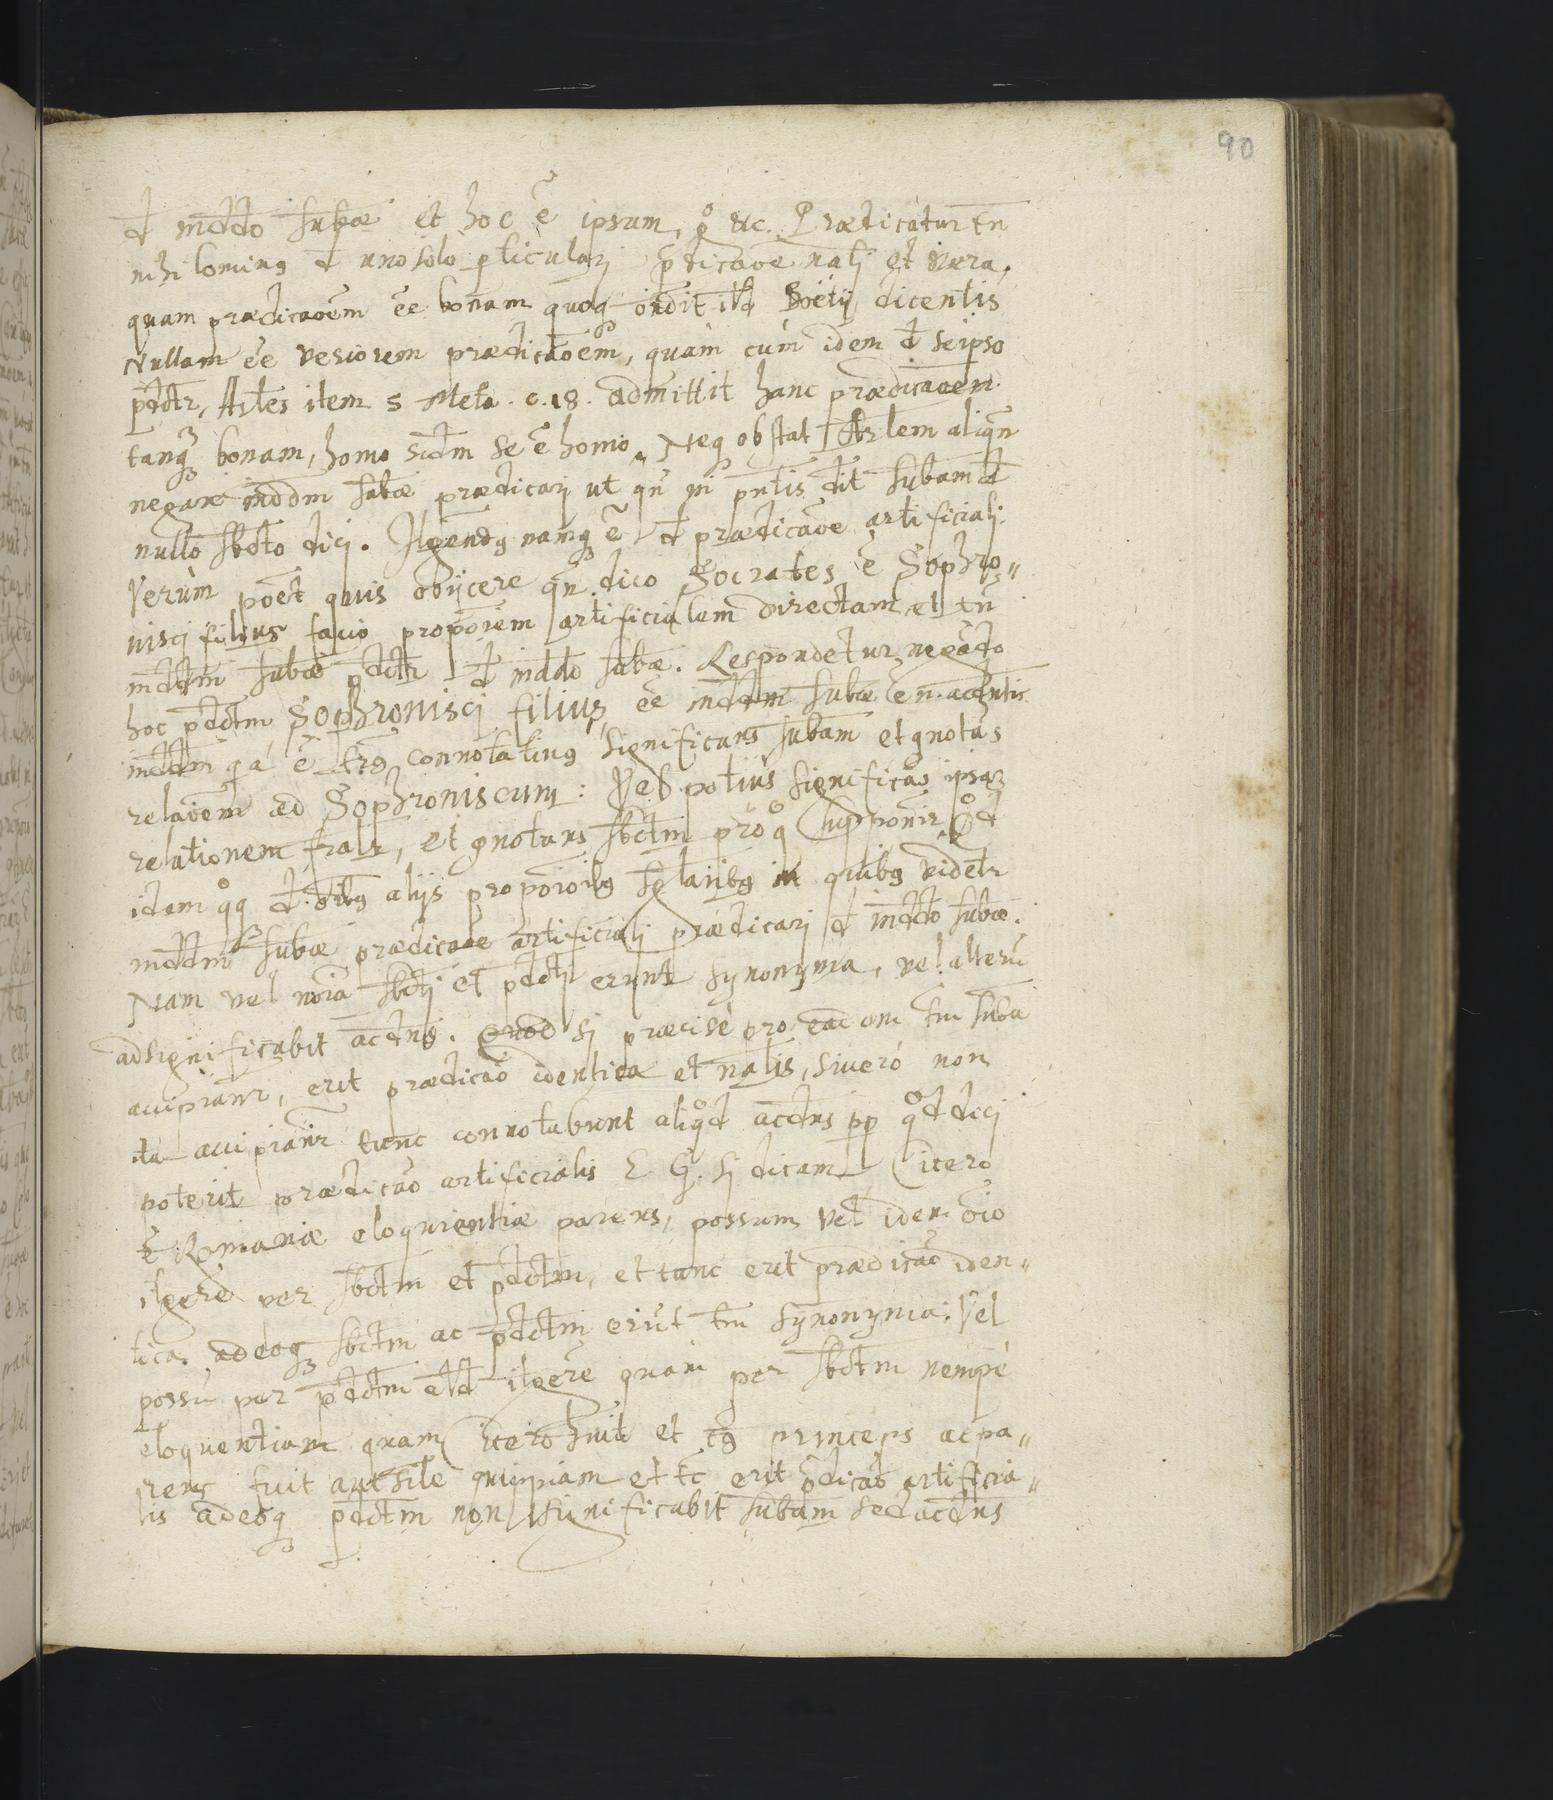 90
đ inddđo subæ et hoc ē ipsum, g° &c. Prædicatur tn̄
nihilominus đ uno solo particulari p̄dicaoē nālj et vera,
quam prædicaōem ēē bonam quoq ōndit illđ Boëtij dicentis
Nullam ēē veriorem prædicaōem, quàm cùm idem đ seipso
p̄dctr, Artles item 5 Meta. c. 18. admittit hanc prædicaōem
tanq bonam, homo scdm se ē homo. Neq obstat Artlem aliqn̄
negare inddm subæ prædicarj ut qn̄ in pn̄tis dit subam đ
nullo sbcto dicj. Itgendus namq ē đ prædicaōe artificialj.
Verùm poēt quis obijcere qn̄ dico Socrates ē Sophro„
niscj filius facio propōēm artificialem directam et tn̄
inddm subæ p̄dctr đ inddo subæ. Respondetur negādo
hoc p̄dctm Sophroniscj filius, ēē inddm subæ ē n. accdntis
inddm qa ē trs connotatiuus significans subam et gnotās
relaōem ad Sophroniscum: Vel potiùs significās ipsaz
relationem frālr, et gnotans sbctm pro q° supponir, Qđ
idem q°q đ oībg alijs propōioibg siglaribg in quibg videtr
inddm subæ prædicaōe artificialj prædicarj đ inddo subæ.
Nam vel noīa sbctj et p̄dctj erunt synonyma, vel alterū
adsignificabit accdns. Quod sj præcisè pro eadem tm suba
accipianr, erit prædicaō identica et nālis, si verò non
ita accipianr tunc connotabunt aliq°d accdns pp q°d dicj
poterit prædicaō artificialis E. G. sj dicam Cicero
ē Romanæ eloquientiæ parens, possum vel idem oīo
itgere per sbctm et p̄dctm, et tunc erit prædicaō iden„
tica. adeoq sbctm ac p̄dctm erūt tm synonyma. Vel
possū per p̄dctm aliđ itgere quàm per sbctm nempe
eloquentiam quam Cicero huit et cg princeps ac pa„
rens fuit aut sile quippiam et tc erit p̄dicaō artificia„
lis adeoq p̄dctm non significabit subam sed accdns